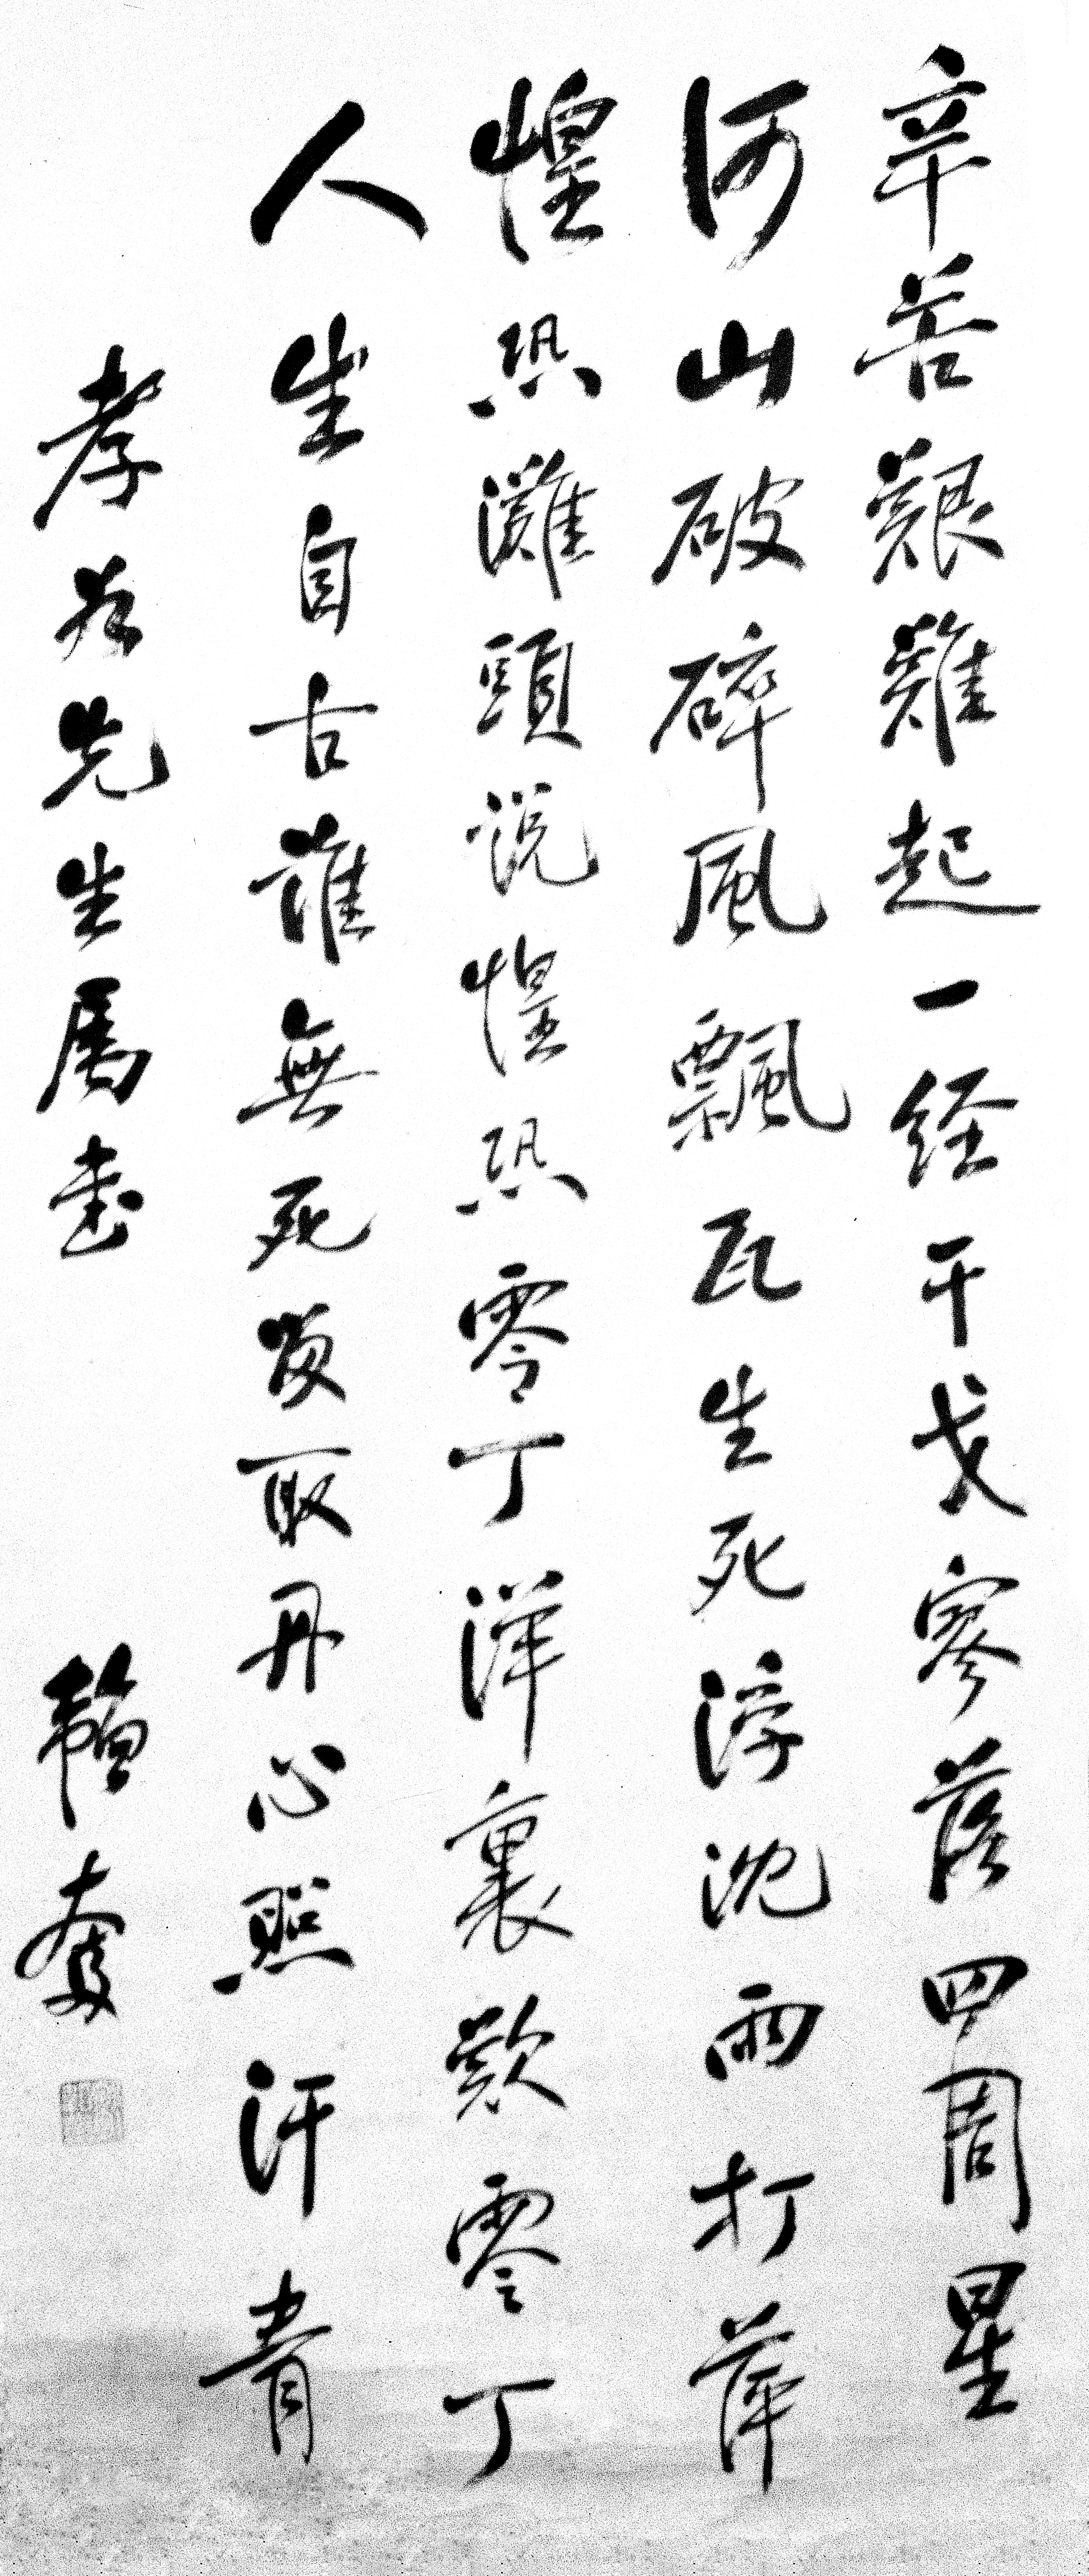 辛苦艱難起一经干戈寥落四周星
河山破碎風飄瓦生死浮沈雨打萍
惶恐灘頭说惶恐零丁洋裏歎零丁
人生自古誰無死留取丹心照汗青
孝先生属書 韜奮